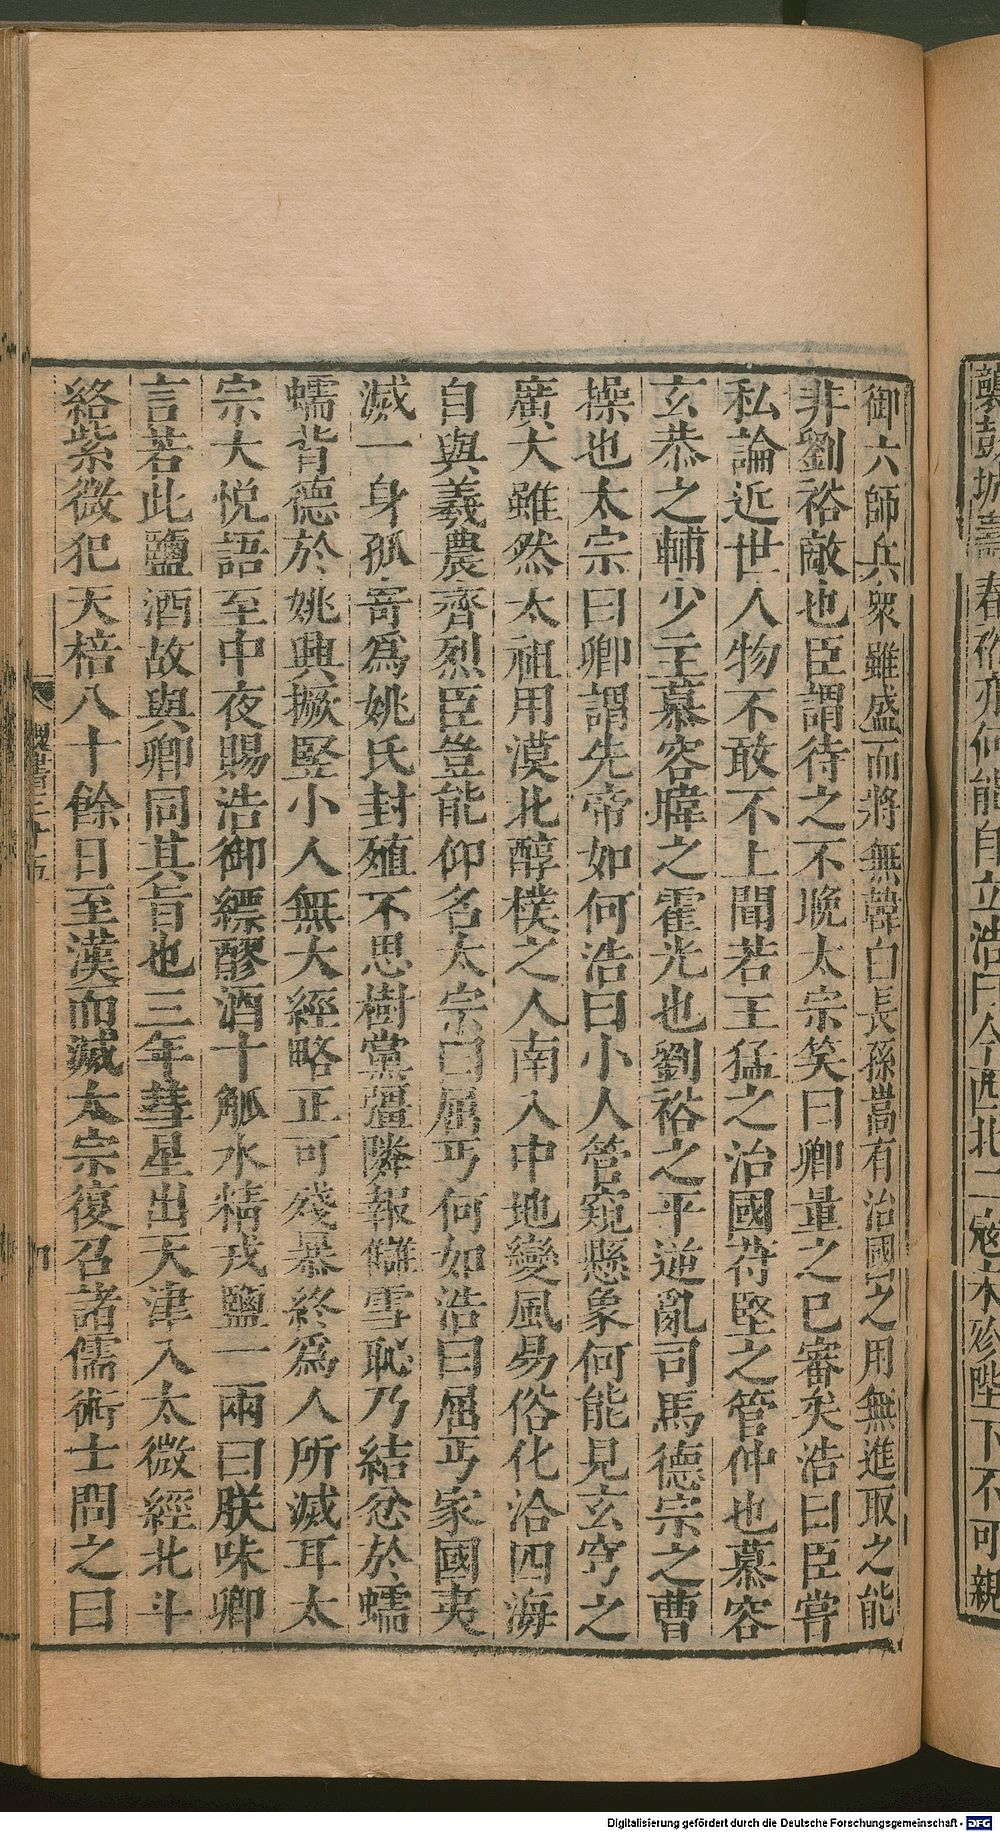 襲彭城壽春裕亦何能自立浩曰今西北二寇未殄陛下不可親
御六師兵衆雖盛而將無韓白長孫嵩有治國之用無進取之能
非劉裕敵也臣謂待之不晚太宗笑曰卿量之已審矣浩曰臣嘗
私論近世人物不敢不上聞若王猛之治國苻堅之管仲也慕容
玄恭之輔少主慕容暐之霍光也劉裕之平逆亂司馬德宗之曹
操也太宗曰卿謂先帝如何浩曰小人管窺懸象何能見玄穹之
廣大雖然太祖用漠北醇樸之人南入中地變風易俗化洽四海
自與羲農齊烈臣豈能仰名太宗曰屈丐何如浩曰屈丐家國夷
滅一身孤寄爲姚氏封殖不思樹黨彊隣報讎雪恥乃結忿於蠕
蠕背德於姚興撅竪小人無大經略正可殘暴終爲人所滅耳太
宗大悅語至中夜賜浩御縹醪酒十觚水精戎鹽一兩曰朕味卿
言若此鹽酒故與卿同其旨也三年彗星出天津入太微經北斗
絡紫微犯天棓八十餘日至漢而滅太宗復召諸儒術士問之曰
魏書三十五
四
Digitalisierung gefördert durch die Deutsche Forschungsgemeinschaft - DFG